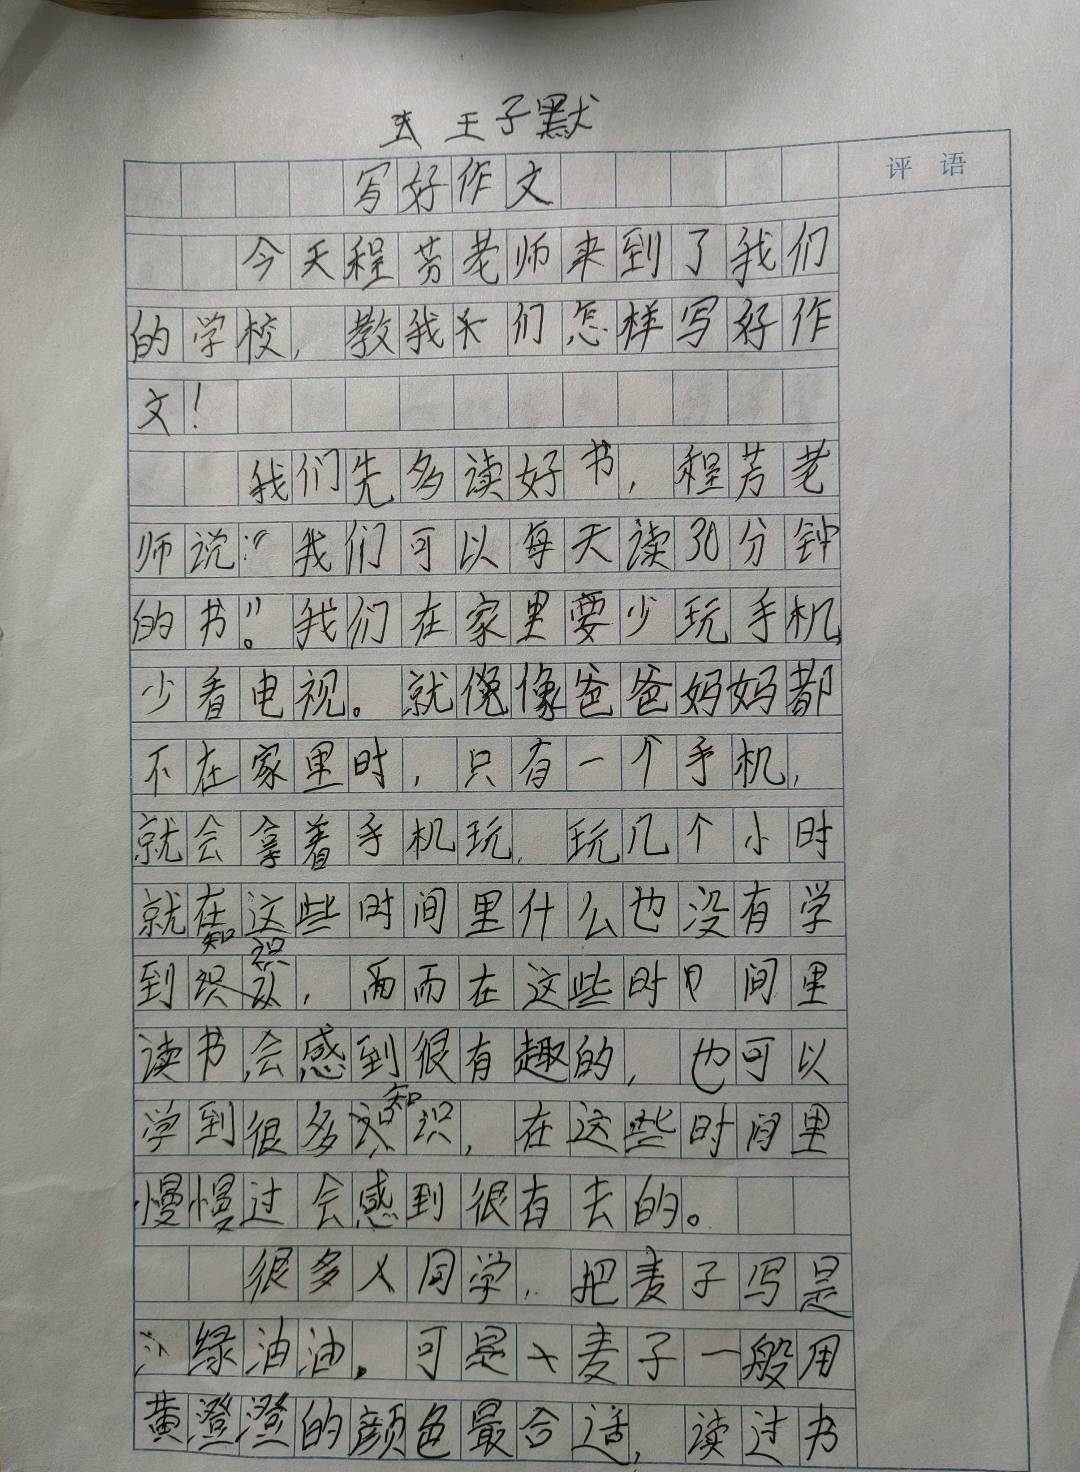 王子默
评 语
写好作文
今天程芳老师来到了我们
的学校,教我们怎样写好作
文!
我们先多读好书,程芳老
师说:“我们可以每天读30分钟
的书”。我们在家里要少玩手机,
少看电视。就像爸爸妈妈都
不在家里时,只有一个手机,
就会拿着手机玩,玩几个小时
就在这些时间里什么也没有学
到知识,而在这些时间里
读书,会感到很有趣的,也可以
学到很多知识,在这些时间里
慢慢过会感到很有去的。
很多同学,把麦子写是
绿油油。可是麦子一般用
黄澄澄的颜色最合适,读过书